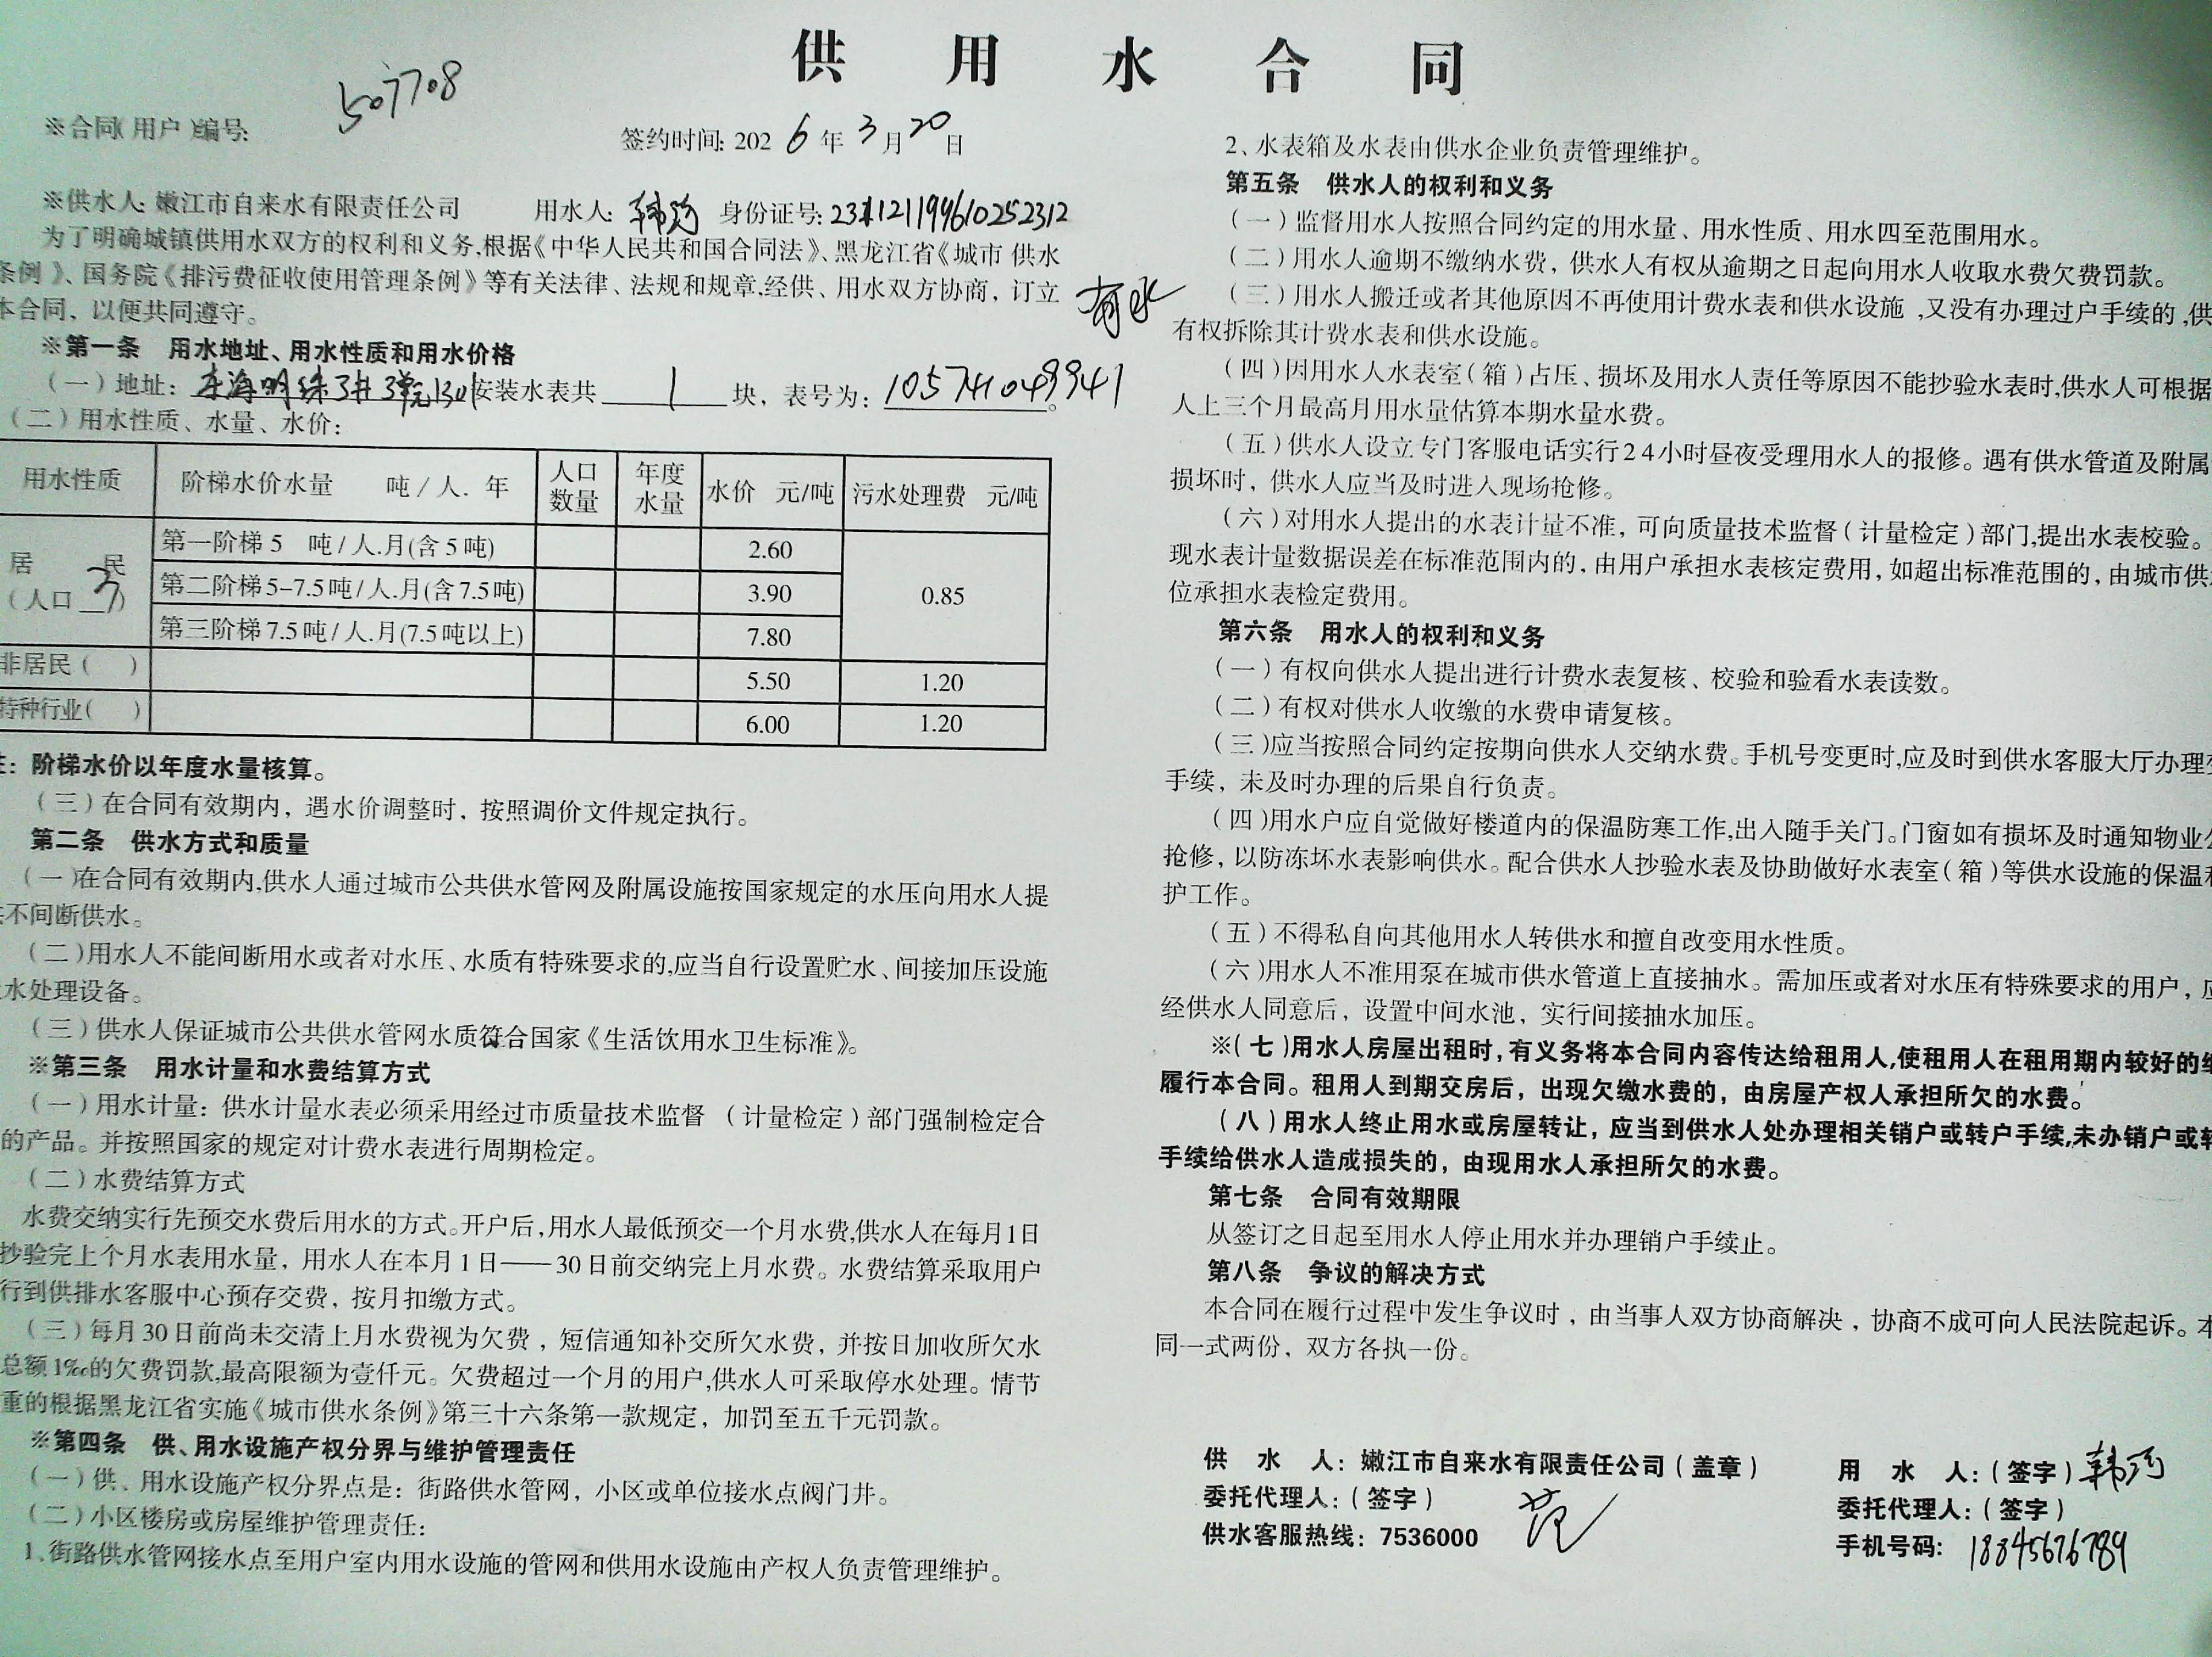 供 用 水 合 同
507708
※合同(用户)编号:
签约时间: 2026年3月20日
※供水人: 嫩江市自来水有限责任公司 用水人: 韩 身份证号:
为了明确城镇供用水双方的权利和义务,根据《中华人民共和国合同法》、黑龙江省《城市 供水
条例》、国务院《排污费征收使用管理条例》等有关法律、法规和规章,经供、用水双方协商，订立
本合同，以便共同遵守。
有水
※第一条 用水地址、用水性质和用水价格
(一)地址: 东海明珠3#3单元1301安装水表共 1 块，表号为: 105741049941。
(二)用水性质、水量、水价:
用水性质 阶梯水价水量 吨/人. 年 人口数量 年度水量 水价 元/吨 污水处理费 元/吨
居 民 (人口 3) 第一阶梯 5 吨/人.月(含5吨) 2.60 0.85
第二阶梯5-7.5吨/人.月(含7.5吨) 3.90
第三阶梯7.5吨/人.月(7.5吨以上) 7.80
非居民( ) 5.50 1.20
特种行业( ) 6.00 1.20
注: 阶梯水价以年度水量核算。
(三)在合同有效期内，遇水价调整时，按照调价文件规定执行。
第二条 供水方式和质量
(一)在合同有效期内,供水人通过城市公共供水管网及附属设施按国家规定的水压向用水人提
不间断供水。
(二)用水人不能间断用水或者对水压、水质有特殊要求的,应当自行设置贮水、间接加压设施
水处理设备。
(三)供水人保证城市公共供水管网水质符合国家《生活饮用水卫生标准》。
※第三条 用水计量和水费结算方式
(一)用水计量: 供水计量水表必须采用经过市质量技术监督 (计量检定)部门强制检定合
的产品。并按照国家的规定对计费水表进行周期检定。
(二)水费结算方式
水费交纳实行先预交水费后用水的方式。开户后,用水人最低预交一个月水费,供水人在每月1日
抄验完上个月水表用水量，用水人在本月1日——30日前交纳完上月水费。水费结算采取用户
行到供排水客服中心预存交费，按月扣缴方式。
(三)每月30日前尚未交清上月水费视为欠费，短信通知补交所欠水费，并按日加收所欠水
总额1‰的欠费罚款,最高限额为壹仟元。欠费超过一个月的用户,供水人可采取停水处理。情节
重的根据黑龙江省实施《城市供水条例》第三十六条第一款规定，加罚至五千元罚款。
※第四条 供、用水设施产权分界与维护管理责任
(一)供、用水设施产权分界点是: 街路供水管网，小区或单位接水点阀门井。
(二)小区楼房或房屋维护管理责任:
1、街路供水管网接水点至用户室内用水设施的管网和供用水设施由产权人负责管理维护。
2、水表箱及水表由供水企业负责管理维护。
第五条 供水人的权利和义务
(一)监督用水人按照合同约定的用水量、用水性质、用水四至范围用水。
(二)用水人逾期不缴纳水费，供水人有权从逾期之日起向用水人收取水费欠费罚款。
(三)用水人搬迁或者其他原因不再使用计费水表和供水设施，又没有办理过户手续的,供
有权拆除其计费水表和供水设施。
(四)因用水人水表室(箱)占压、损坏及用水人责任等原因不能抄验水表时,供水人可根据
人上三个月最高月用水量估算本期水量水费。
(五)供水人设立专门客服电话实行24小时昼夜受理用水人的报修。遇有供水管道及附属
损坏时，供水人应当及时进入现场抢修。
(六)对用水人提出的水表计量不准，可向质量技术监督(计量检定)部门,提出水表校验。
现水表计量数据误差在标准范围内的，由用户承担水表核定费用，如超出标准范围的，由城市供
位承担水表检定费用。
第六条 用水人的权利和义务
(一)有权向供水人提出进行计费水表复核、校验和验看水表读数。
(二)有权对供水人收缴的水费申请复核。
(三)应当按照合同约定按期向供水人交纳水费。手机号变更时,应及时到供水客服大厅办理
手续，未及时办理的后果自行负责。
(四)用水户应自觉做好楼道内的保温防寒工作,出入随手关门。门窗如有损坏及时通知物业
抢修，以防冻坏水表影响供水。配合供水人抄验水表及协助做好水表室(箱)等供水设施的保温
护工作。
(五)不得私自向其他用水人转供水和擅自改变用水性质。
(六)用水人不准用泵在城市供水管道上直接抽水。需加压或者对水压有特殊要求的用户，应
经供水人同意后，设置中间水池，实行间接抽水加压。
※(七)用水人房屋出租时,有义务将本合同内容传达给租用人,使租用人在租用期内较好的
履行本合同。租用人到期交房后，出现欠缴水费的，由房屋产权人承担所欠的水费。
(八)用水人终止用水或房屋转让，应当到供水人处办理相关销户或转户手续,未办销户或转
手续给供水人造成损失的，由现用水人承担所欠的水费。
第七条 合同有效期限
从签订之日起至用水人停止用水并办理销户手续止。
第八条 争议的解决方式
本合同在履行过程中发生争议时，由当事人双方协商解决，协商不成可向人民法院起诉。本
同一式两份，双方各执一份。
供 水 人: 嫩江市自来水有限责任公司(盖章)
委托代理人:(签字) 范
供水客服热线: 7536000
用 水 人:(签字) 韩
委托代理人:(签字)
手机号码: 18845676789